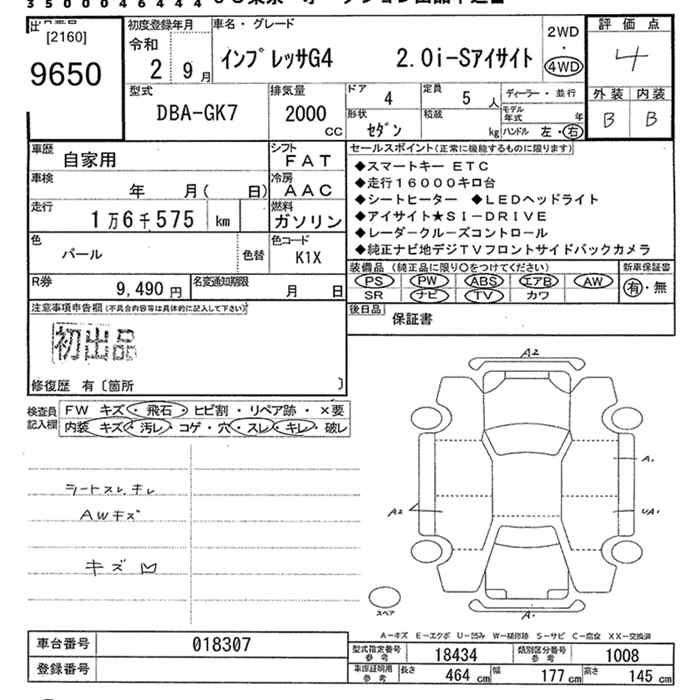 350004644４
出品番号 [2160]
9650
初度登録年月
令和
2 9月
車名・グレード
インプレッサG4 2.0i-Sアイサイト
2WD
・
4WD
評価点
4
外装 内装
B B
型式
DBA-GK7
排気量
2000 CC
ドア 4
定員 5人
形状 セダン
積載 kg
ディーラー・並行
モデル年式 年
ハンドル 左・右
車歴 自家用
シフト FAT
車検 年 月( 日)
冷房 AAC
走行 1万6千575 km
燃料 ガソリン
色 パール
色替
色コード K1X
R券 9,490円
名変通知期限 月 日
セールスポイント(正常に機能するものに限ります)
◆スマートキー ETC
◆走行16000キロ台
◆シートヒーター ◆LEDヘッドライト
◆アイサイト★SI-DRIVE
◆レーダークルーズコントロール
◆純正ナビ地デジTVフロントサイドバックカメラ
装備品(純正品に限り○をつけてください)
PS PW ABS エアB AW
SR ナビ TV カワ
新車保証書
有・無
後日品 保証書
注意事項申告欄(不具合内容等は具体的に記入して下さい)
初出品
修復歴 有〔箇所 〕
検査員記入欄
FW キズ・飛石・ヒビ割・リペア跡・×要
内装 キズ・汚レ・コゲ・穴・スレ・キレ・破レ
シートスレ、キレ
AWキズ
キズ
A2
A1
A2
UA1
スペア
A-キズ E-エクボ U-凹み W-補修跡 S-サビ C-腐食 XX-交換済
車台番号 018307
登録番号
型式指定番号参考 18434
類別区分番号参考 1008
車庫証明用参考 長さ 464 cm 幅 177 cm 高さ 145 cm